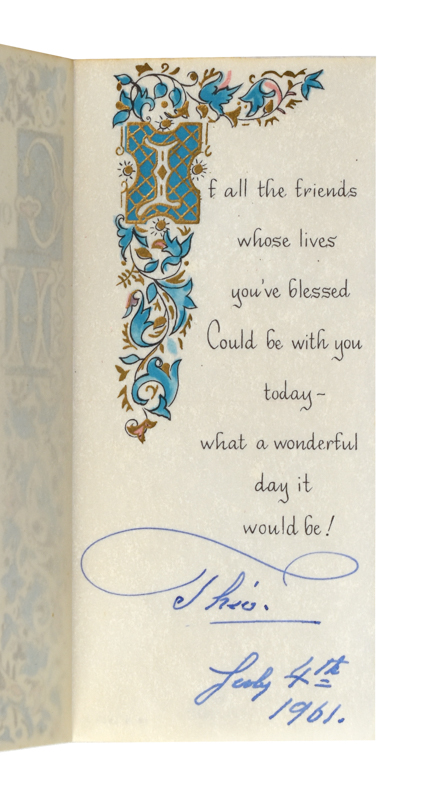 If all the friends
whose lives
you've blessed
Could be with you
today~
what a wonderful
day it
would be!
Thio.
July 4th
1961.